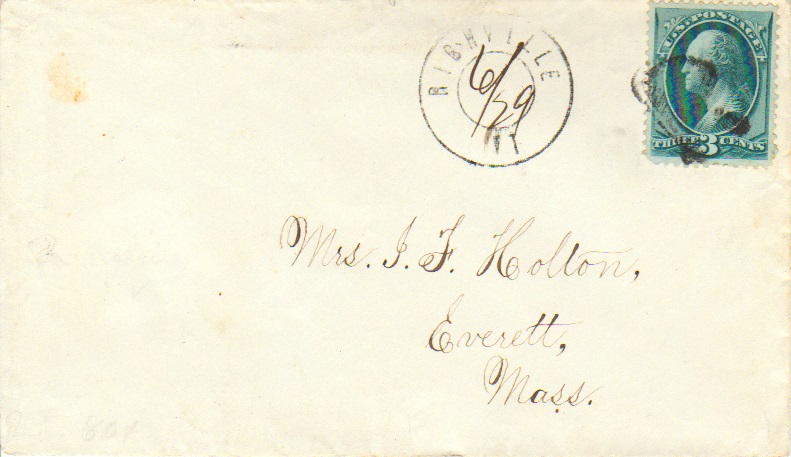 RICHVILLE
6/29
VT
U.S. POSTAGE
THREE 3 CENTS
Mrs. I. F. Holton,
Everett,
Mass.